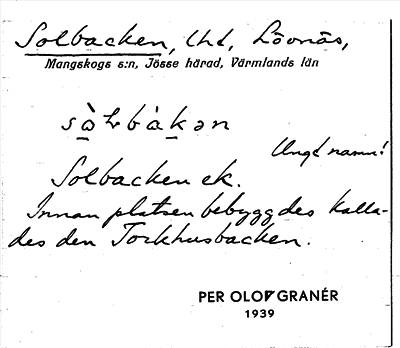 Solbacken, Uhl, Lövnäs,
Mangskogs s:n, Jösse härad, Värmlands län
Ungt namn!
Solbacken ek.
Innan platsen bebyggdes kalla-
des den Torkhusbacken.
PER OLOF GRANÉR
1939